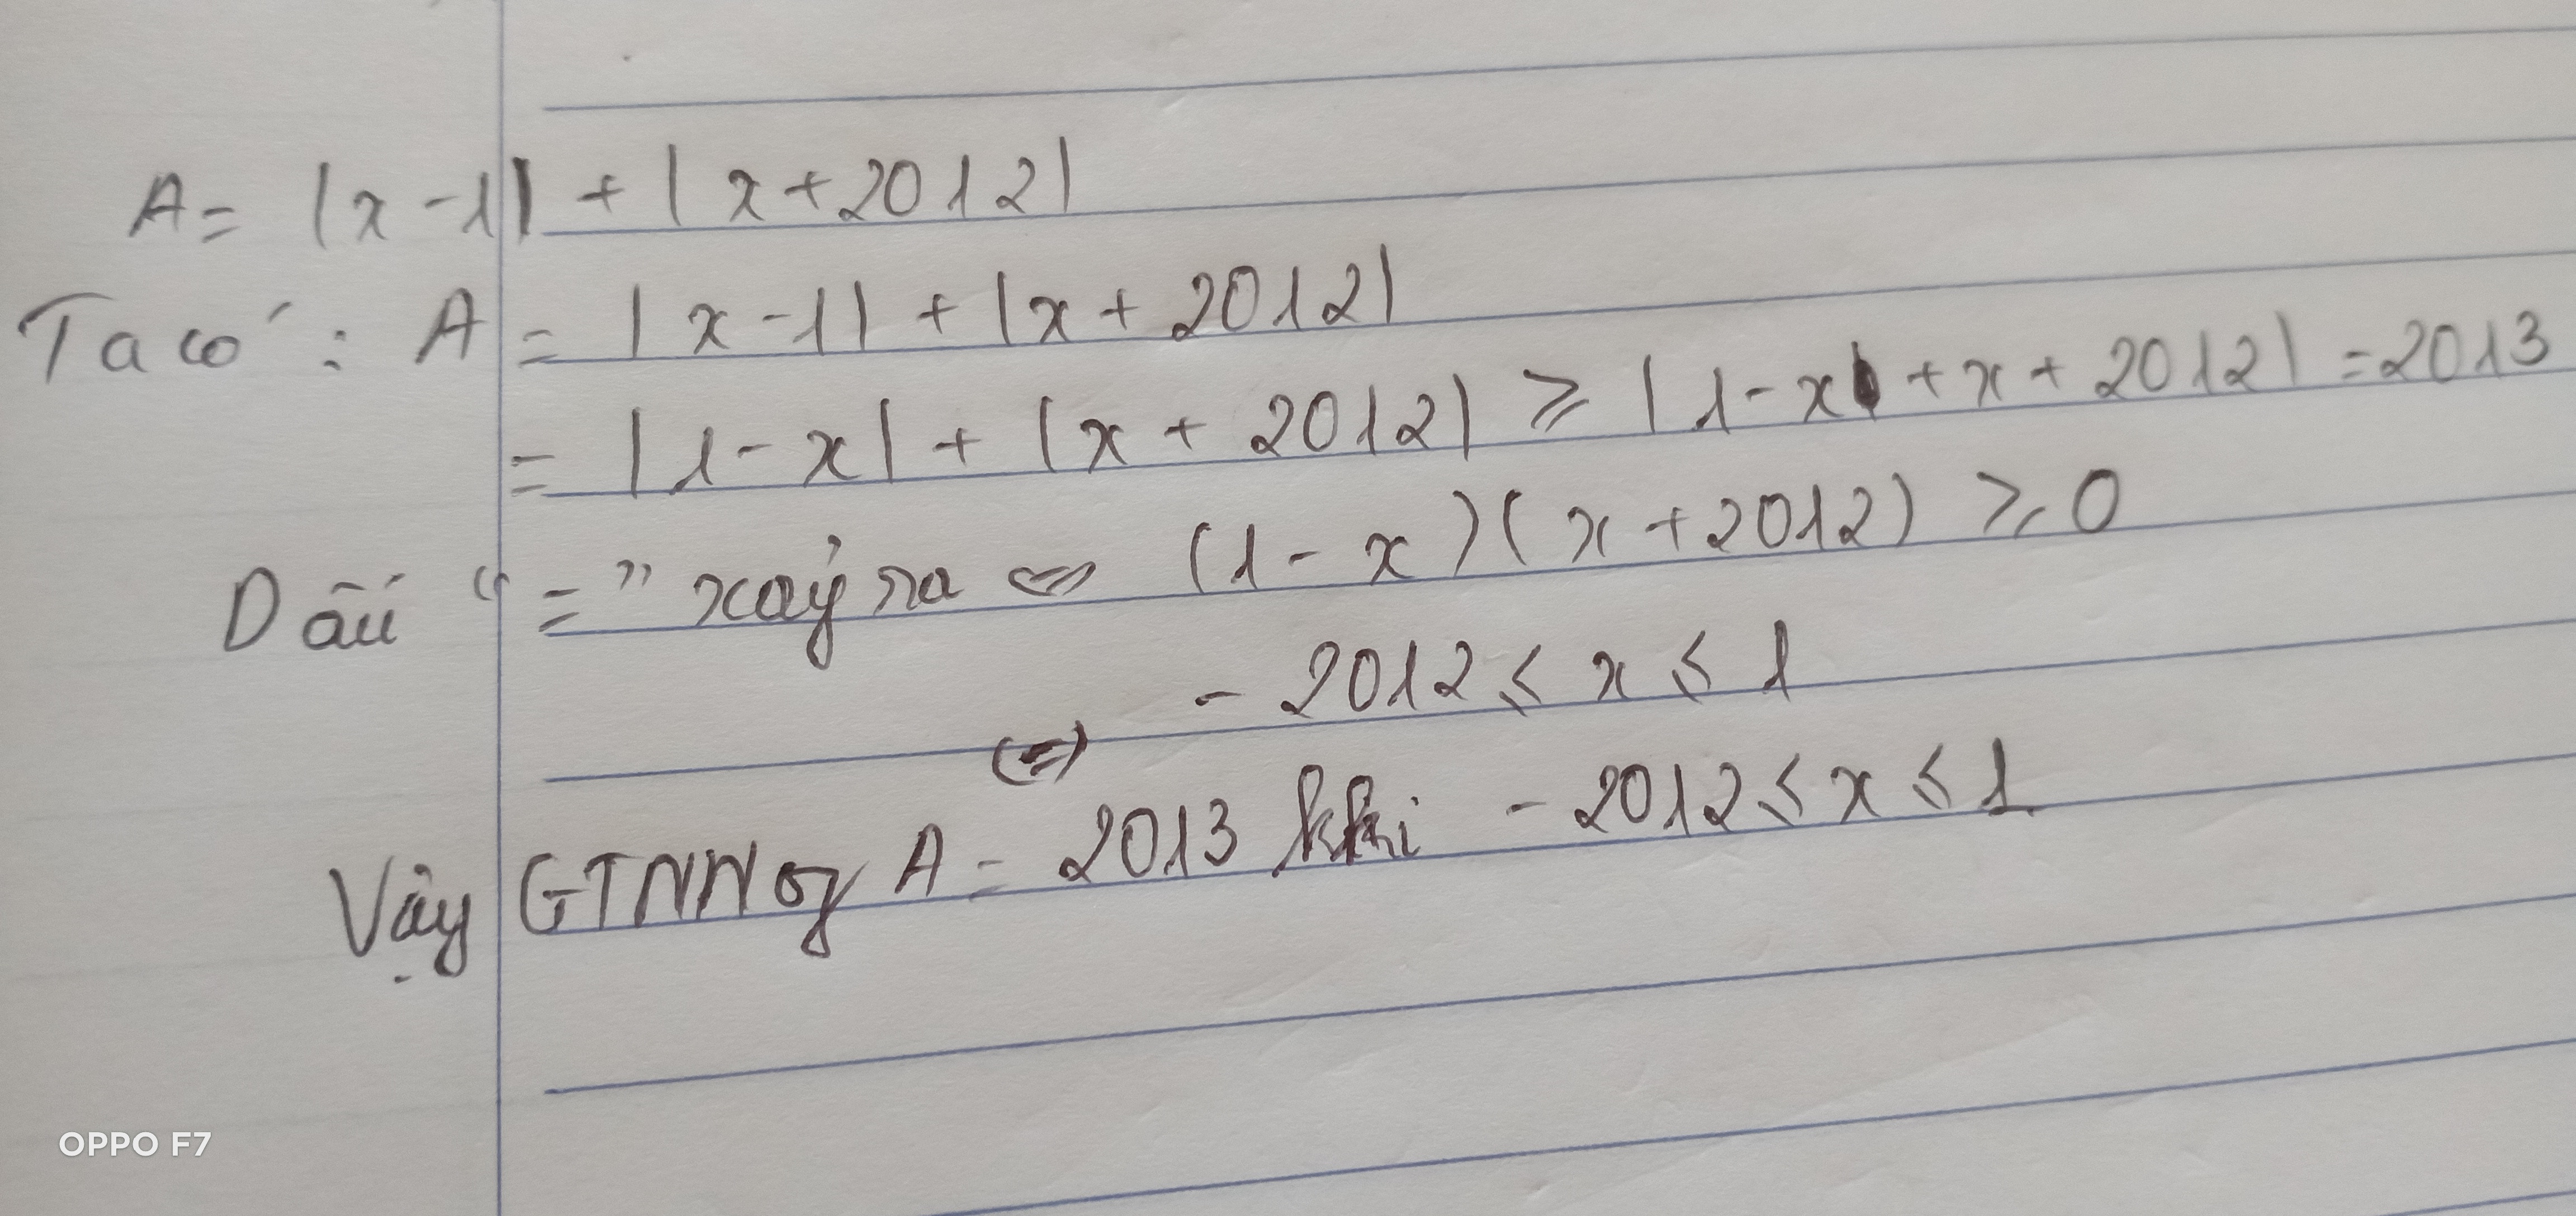 A = |x - 1| + |x + 2012|
Ta có : A = |x - 1| + |x + 2012|
= |1 - x| + |x + 2012| ≥ |1 - x + x + 2012| = 2013
Dấu "=" xảy ra ⇔ (1 - x)(x + 2012) ≥ 0
⇔ - 2012 ≤ x ≤ 1
Vậy GTNN of A = 2013 khi - 2012 ≤ x ≤ 1
OPPO F7